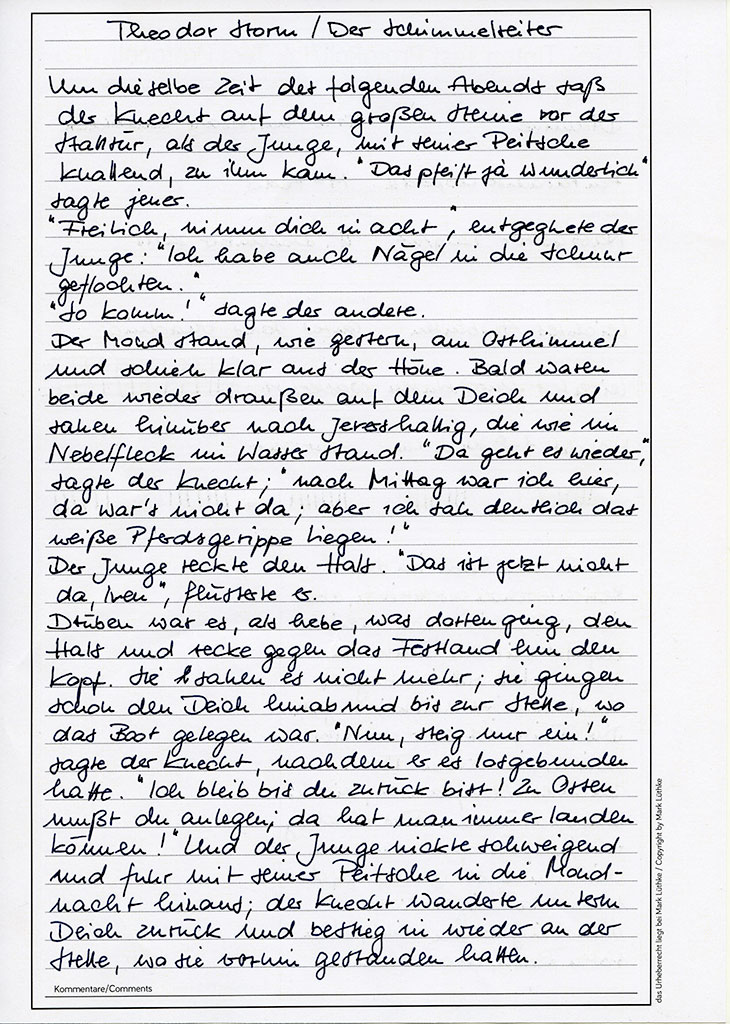 Theodor Storm / Der Schimmelreiter
Um dieselbe Zeit des folgenden Abends saß
der Knecht auf dem großen Steine vor der
Stalltür, als der Junge, mit seiner Peitsche
knallend, zu ihm kam. "Das pfeift ja wunderlich"
sagte jener.
"Freilich, nimm dich in acht", entgegnete der
Junge: "Ich habe auch Nägel in die Schnur
geflochten."
"So komm!" sagte der andere.
Der Mond stand, wie gestern, am Osthimmel
und schien klar aus der Höhe. Bald waren
beide wieder draußen auf dem Deich und
sahen hinüber nach Jevershallig, die wie ein
Nebelfleck im Wasser stand. "Da geht es wieder,"
sagte der Knecht; "nach Mittag war ich hier,
da war's nicht da; aber ich sah deutlich das
weiße Pferdsgerippe liegen!"
Der Junge reckte den Hals. "Das ist jetzt nicht
da, Iven", flüsterte er.
Drüben war es, als hebe, was dorten ging, den
Hals und recke gegen das Festland hin den
Kopf. Sie sahen es nicht mehr; sie gingen
schon den Deich hinab und bis zur Stelle, wo
das Boot gelegen war. "Nun, steig nur ein!"
sagte der Knecht, nachdem er es losgebunden
hatte. "Ich bleib bis du zurück bist! Zu Osten
mußt du anlegen; da hat man immer landen
können!" Und der Junge nickte schweigend
und fuhr mit seiner Peitsche in die Mond-
nacht hinaus; der Knecht wanderte unterm
Deich zurück und bestieg in wieder an der
Stelle, wo sie vorhin gestanden hatten.
Kommentare/Comments
das Urheberrecht liegt bei Mark Lüthke / Copyright by Mark Lüthke